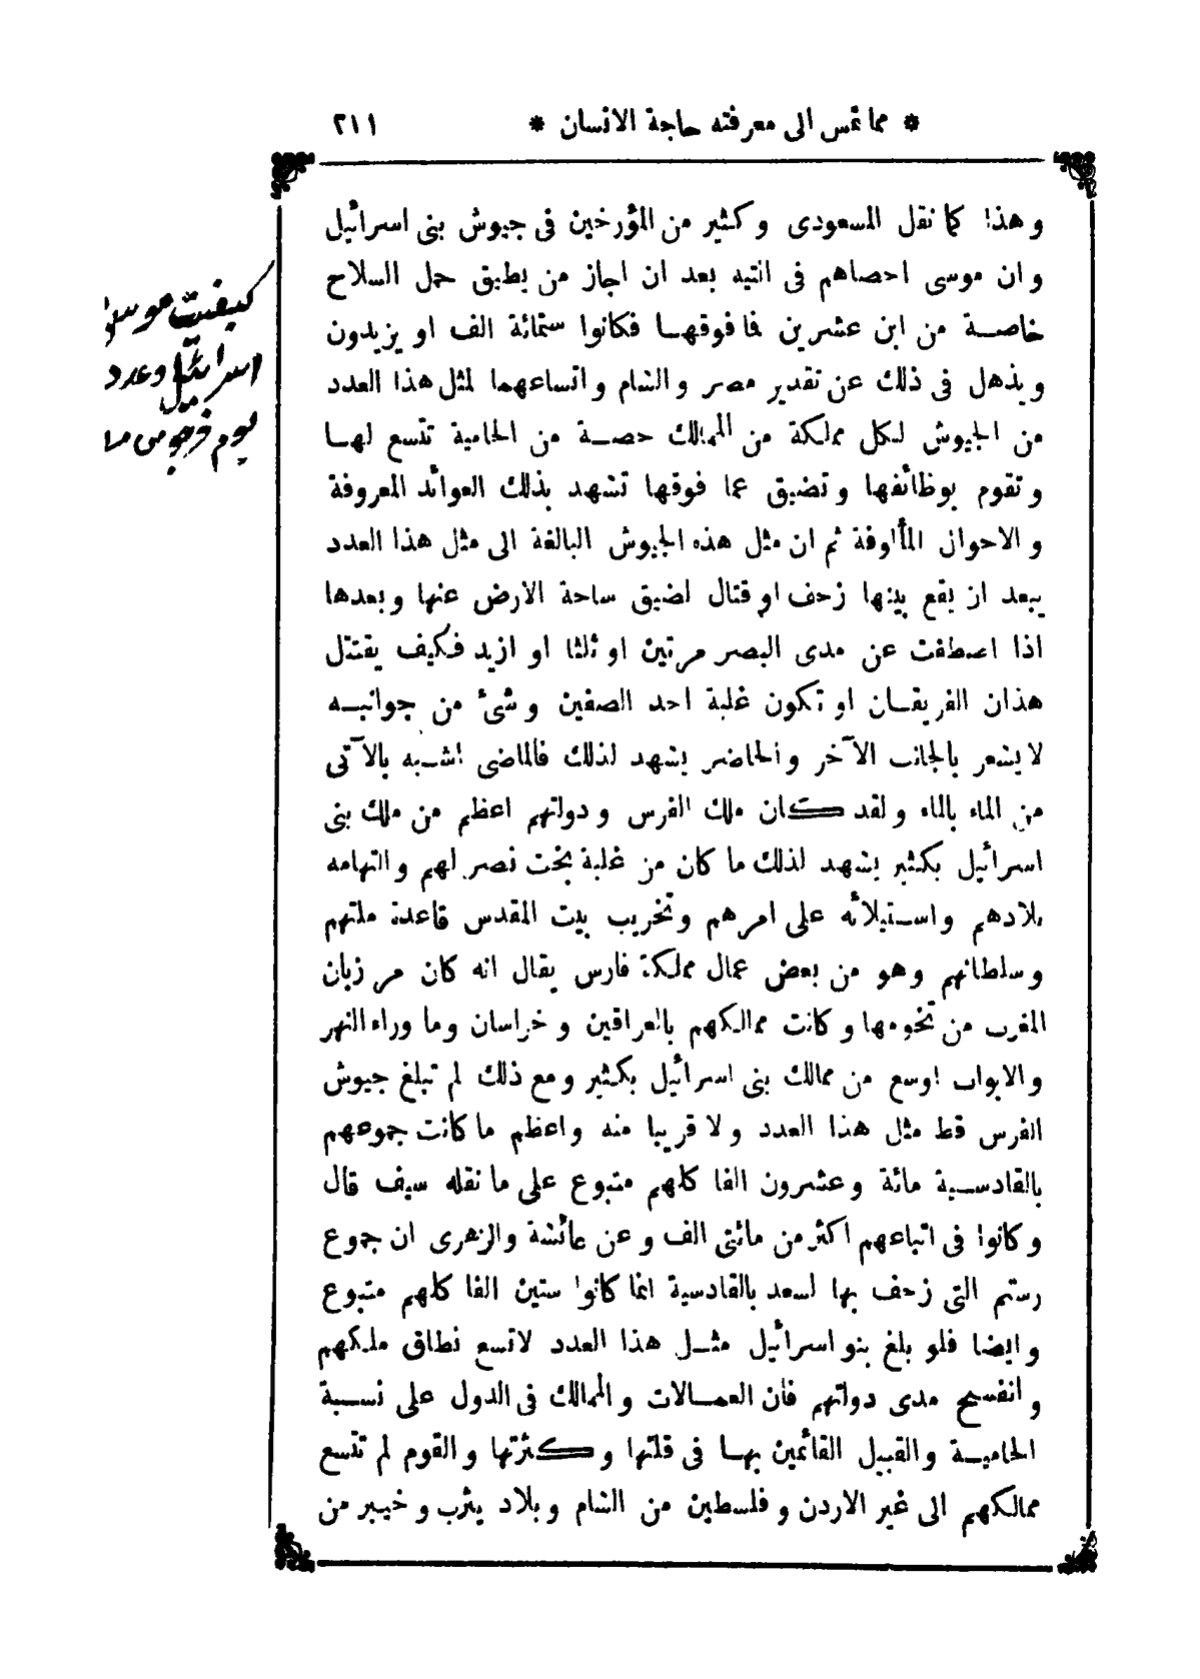 * مما تمس الى معرفته حاجة الانسان * ٢١١
وهذا كما نقل المسعودى وكثير من المؤرخين فى جيوش بنى اسرائيل
وان موسى احصاهم فى التيه بعد ان اجاز من يطيق حمل السلاح
خاصة من ابن عشرين فما فوقها فكانوا ستمائة الف او يزيدون
ويذهل فى ذلك عن تقدير مصر والشام واتساعهما لمثل هذا العدد
من الجيوش لكل مملكة من الممالك حصة من الحامية تتسع لها
وتقوم بوظائفها وتضيق عما فوقها تشهد بذلك العوائد المعروفة
والاحوال المألوفة ثم ان مثل هذه الجيوش البالغة الى مثل هذا العدد
يبعد ان يقع بينها زحف او قتال لضيق ساحة الارض عنها وبعدها
اذا اصطفت عن مدى البصر مرتين او ثلثا او ازيد فكيف يقتتل
هذان الفريقان او تكون غلبة احد الصفين وشئ من جوانبه
لا يشعر بالجانب الآخر والحاضر يشهد لذلك فالماضى اشبه بالآتى
من الماء بالماء ولقد كان ملك الفرس ودولتهم اعظم من ملك بنى
اسرائيل بكثير يشهد لذلك ما كان من غلبة بخت نصر لهم والتهامه
بلادهم واستيلائه على امرهم وتخريب بيت المقدس قاعدة ملتهم
وسلطانهم وهو من بعض عمال مملكة فارس يقال انه كان مرزبان
المغرب من تخومها وكانت ممالكهم بالعراقين وخراسان وما وراء النهر
والابواب اوسع من ممالك بنى اسرائيل بكثير ومع ذلك لم تبلغ جيوش
الفرس قط مثل هذا العدد ولا قريبا منه واعظم ما كانت جموعهم
بالقادسية مائة وعشرون الفا كلهم متبوع على ما نقله سيف قال
وكانوا فى اتباعهم اكثر من مائتى الف وعن عائشة والزهرى ان جموع
رستم التى زحف بها لسعد بالقادسية انما كانوا ستين الفا كلهم متبوع
وايضا فلو بلغ بنو اسرائيل مثل هذا العدد لاتسع نطاق ملكهم
وانفسح مدى دولتهم فان العمالات والممالك فى الدول على نسبة
الحامية والقبيل القائمين بها فى قلتها وكثرتها والقوم لم تتسع
ممالكهم الى غير الاردن وفلسطين من الشام وبلاد يثرب وخيبر من
كيفيت
وعدد
يوم